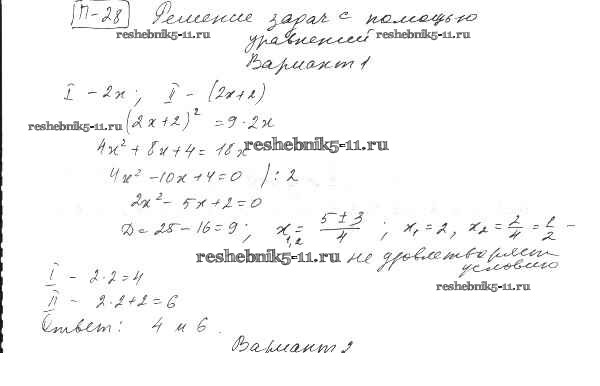 П-28 Решение задач с помощью
reshebnik5-11.ru уравнений reshebnik5-11.ru
Вариант 1
I - 2x; II - (2x+2)
reshebnik5-11.ru (2x+2)² = 9·2x
4x² + 8x + 4 = 18x reshebnik5-11.ru
4x² - 10x + 4 = 0 /: 2
2x² - 5x + 2 = 0
D = 25 - 16 = 9; x₁,₂ = (5±3)/4; x₁ = 2, x₂ = 2/4 = 1/2 -
reshebnik5-11.ru не удовлетворяет
условию
I - 2·2=4
reshebnik5-11.ru
II - 2·2+2=6
Ответ: 4 и 6.
Вариант 2